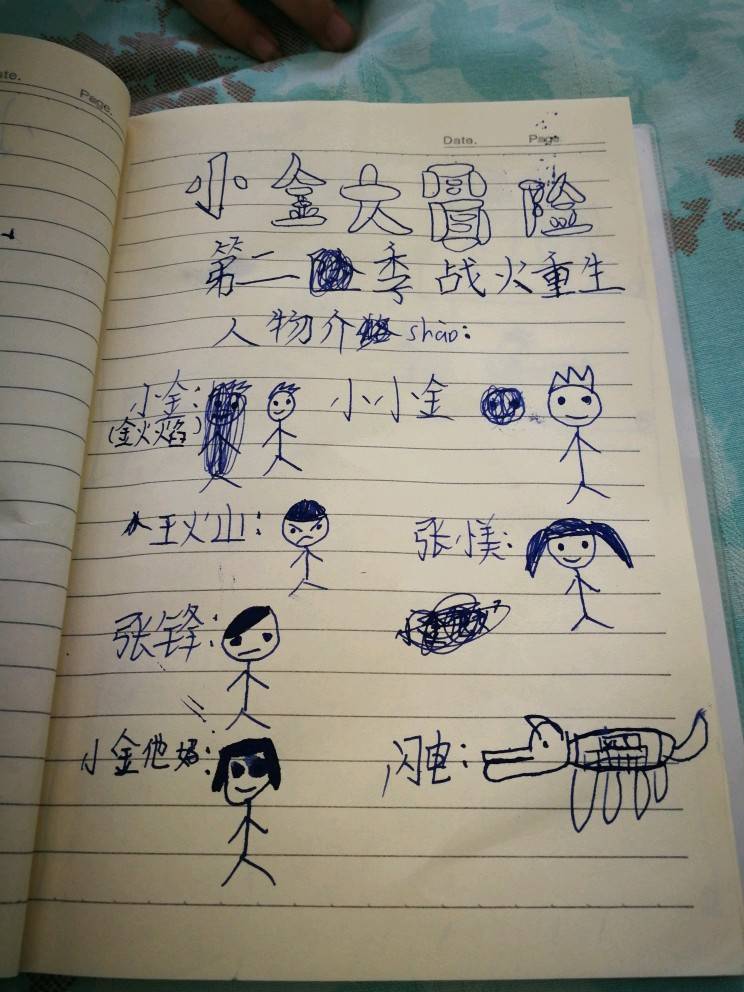 te.
Page.
Date. Page
小金大冒险
第二季 战火重生
人物介shào:
小金: 小小金
(金火焰)
王火山: 张小美:
张锋:
小金他妈: 闪电: